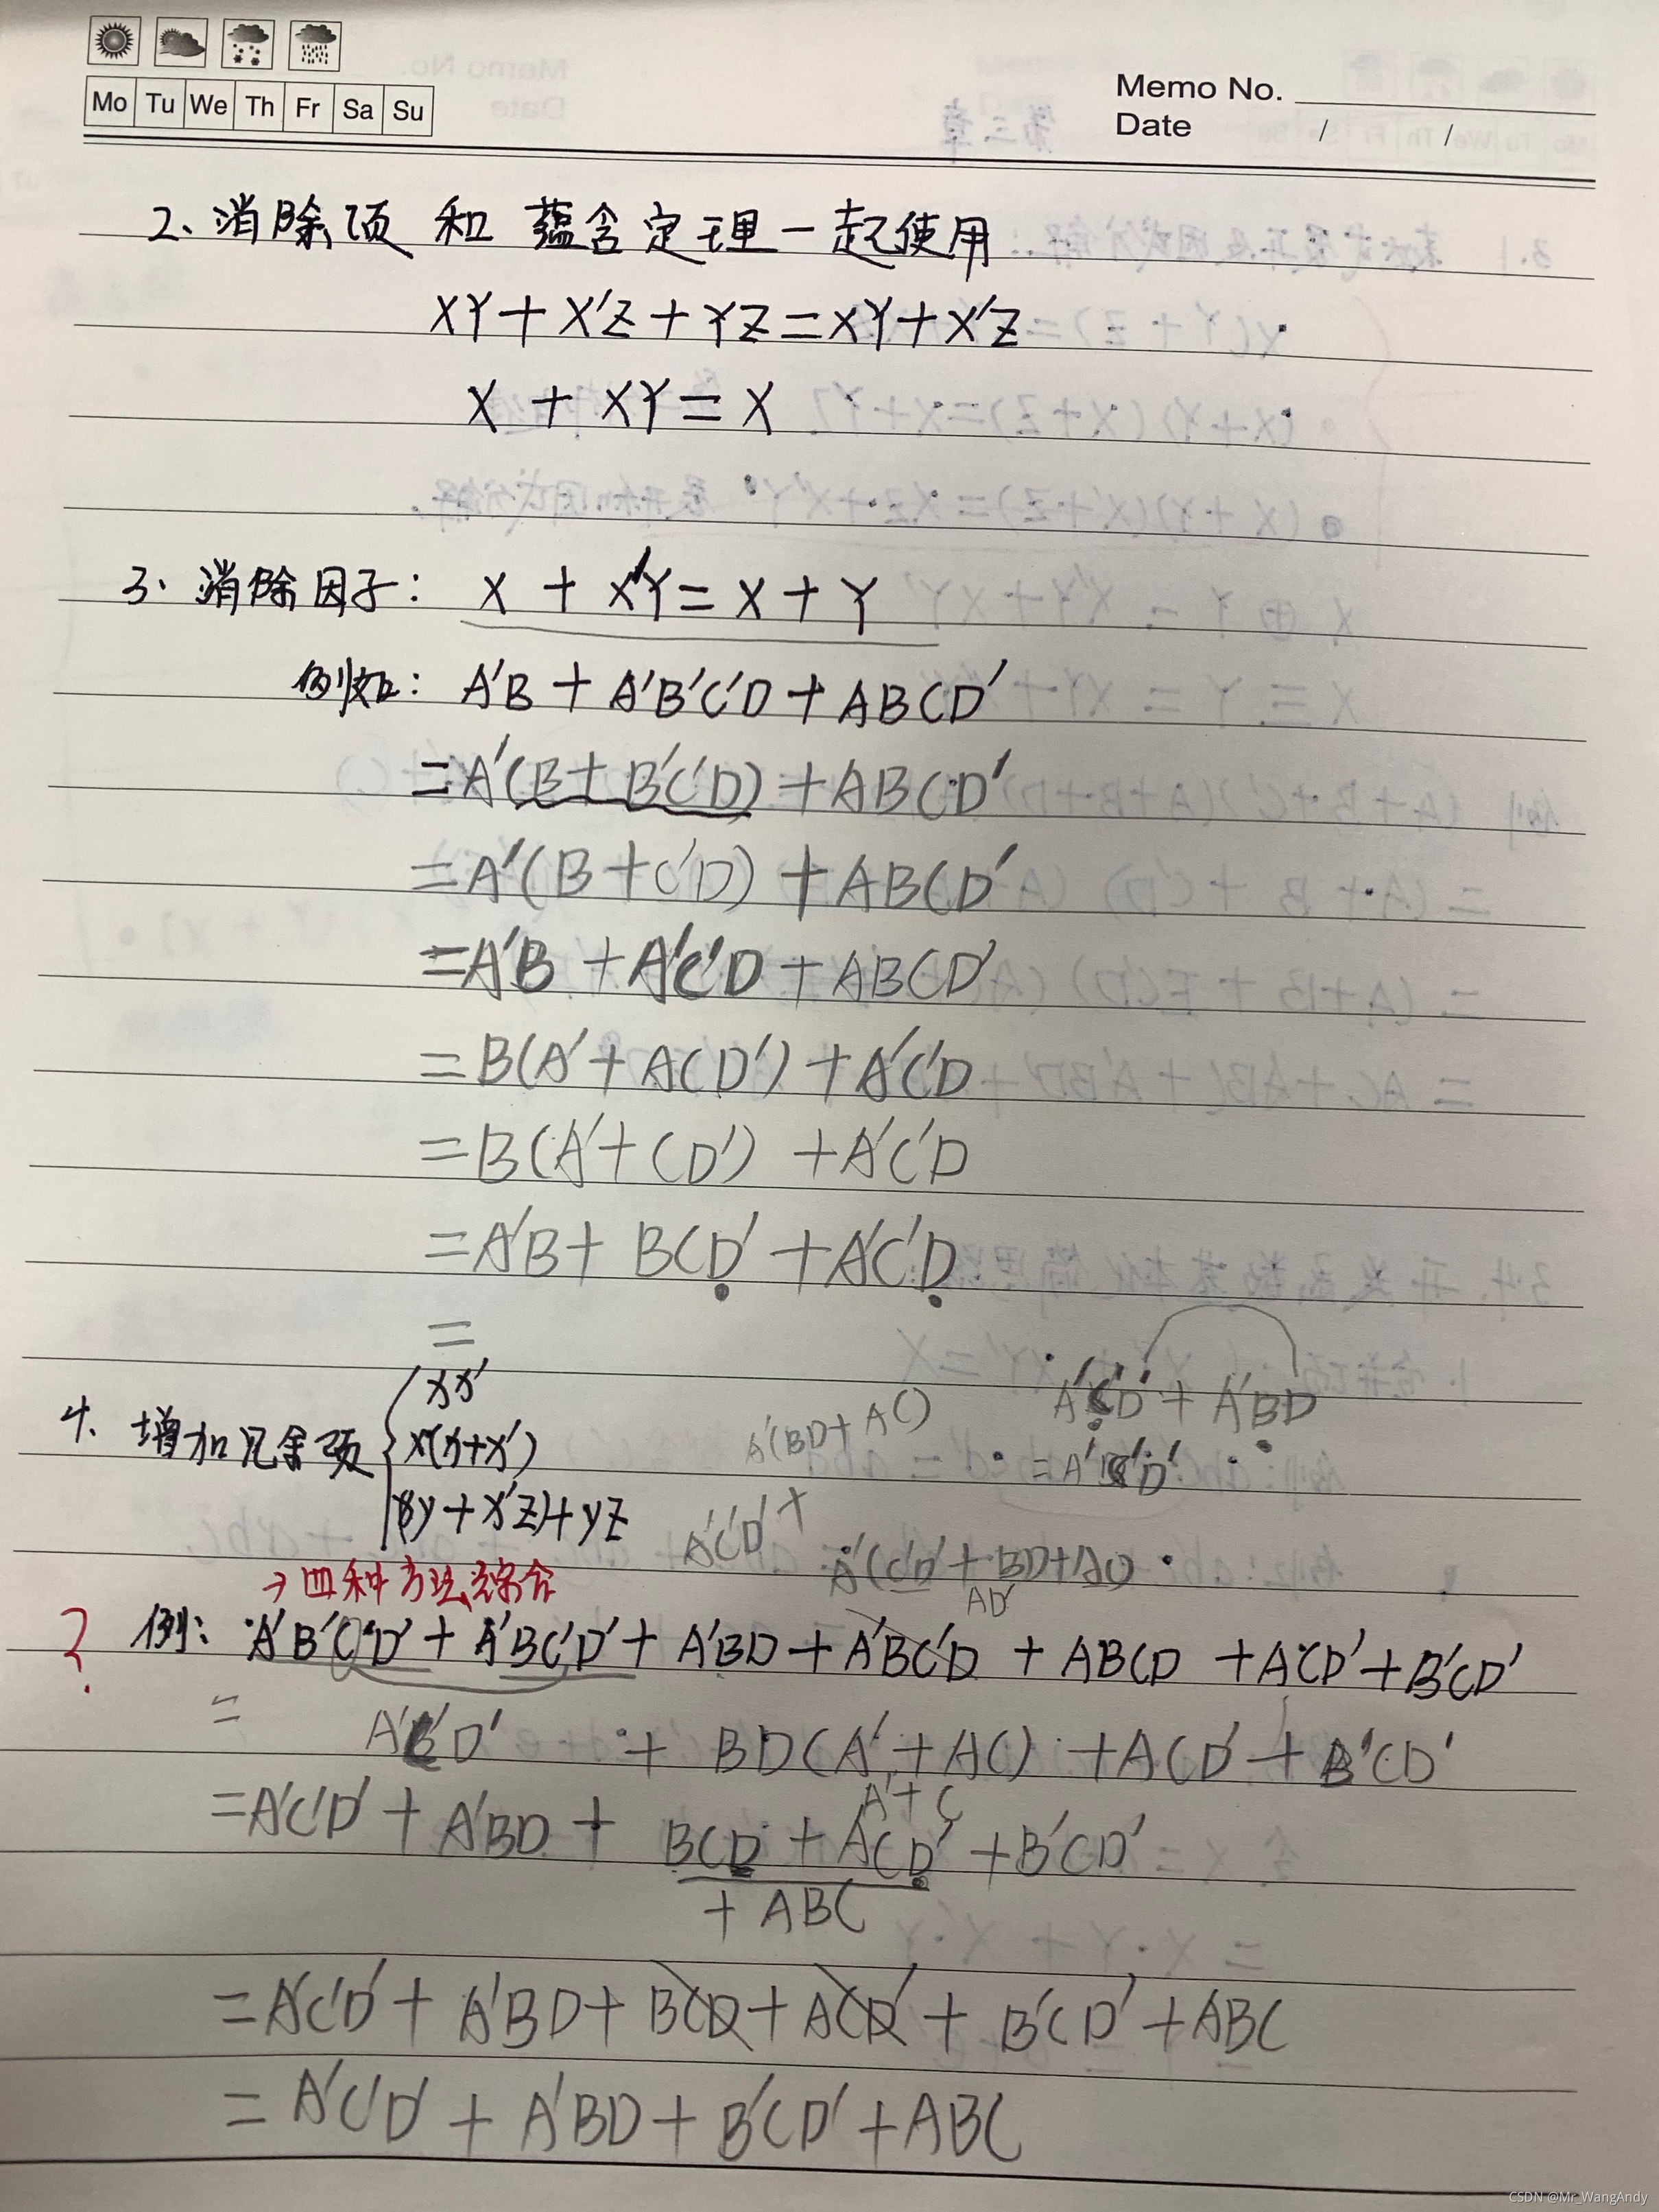 Mo Tu We Th Fr Sa Su
Memo No.
Date / /
2、消除项 和 蕴含定理一起使用
XY + X'Z + YZ = XY + X'Z
X + XY = X
3. 消除因子: X + X'Y = X + Y
例如: A'B + A'B'C'D + ABCD'
= A'(B + B'C'D) + ABCD'
= A'(B + C'D) + ABCD'
= A'B + A'C'D + ABCD'
= B(A' + ACD') + A'C'D
= B(A' + CD') + A'C'D
= A'B + BCD' + A'C'D
=
4. 增加冗余项 { xx'
x(x+x')
(xy + x'z) + yz
A'(BD + AC)
A'C'D' + A'BD
= A'C'D'
A'C'D' +
A'(C'D' + BD + AC)
AD'
→ 四种方法综合
? 例: A'B'C'D' + A'BC'D' + A'BD + A'BC'D + ABCD + ACD' + B'CD'
= A'C'D' + BD(A' + AC) + ACD' + B'CD'
A' + C
= A'C'D' + A'BD + BCD + ACD' + B'CD'
+ ABC
= A'C'D' + A'BD + BCD + ACD' + B'CD' + ABC
= A'C'D' + A'BD + B'CD' + ABC
CSDN @Mr_WangAndy